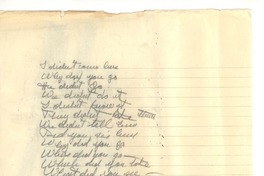 I didn't come here
Why did you go
He didn't go
We didn't do it
I didn't know it
They didn't
We didn't tell him
Did you see him
Why did you go
When did you go
Which did you take
What did you see